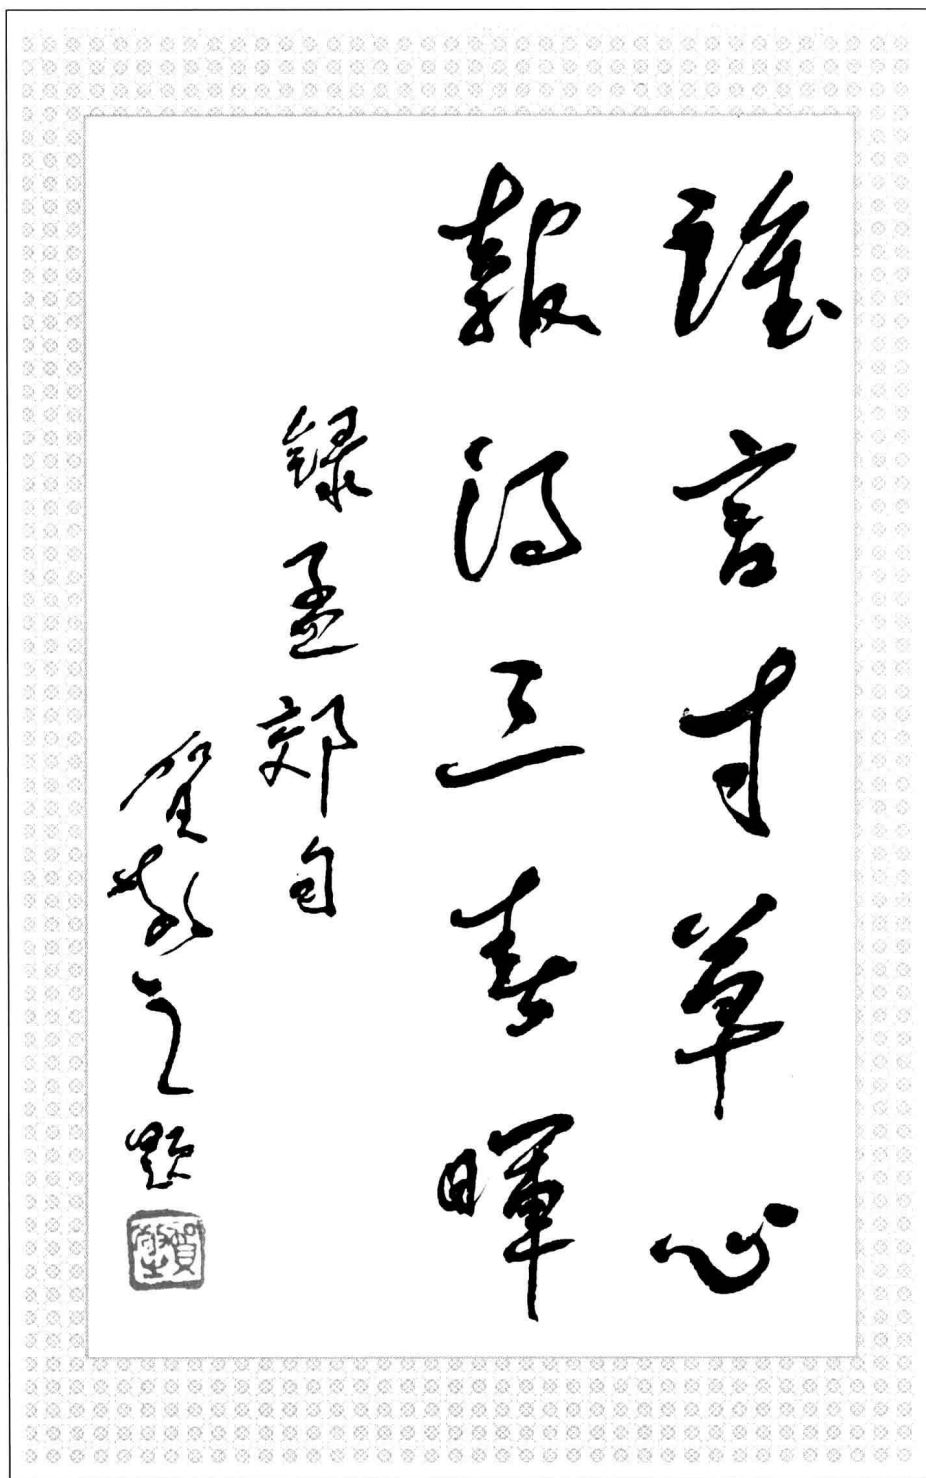 誰言寸草心
報得三春暉
録孟郊句
賀敬之題
賀敬之